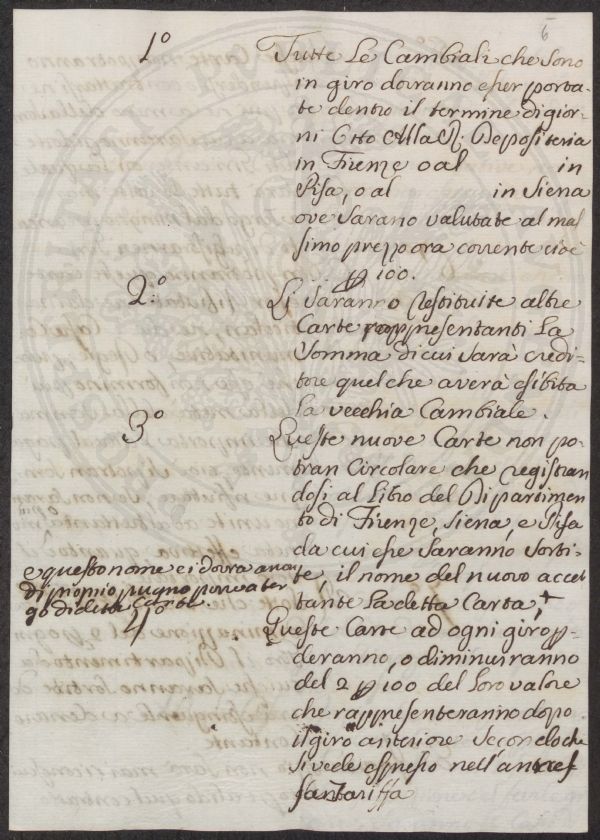 6
1º
Tutte Le Cambiali che sono
in giro dovranno esser porta-
te dentro il termine di gior-
ni Otto Alla R. Depositeria
in Firenze o al in
Pisa, o al in Siena
ove Sarano valutate al mas
simo prezzo ora corrente cioè
p 100.
2.º
Li Saranno restituite altre
Carte rappresentanti La
Somma di cui Sarà credi-
tore quel che averà esibita
La vecchia Cambiale.
3º
Queste nuove Carte non po-
tran Circolare che registran
dosi al Libro del Dipartimen
to di Firenze, Siena, e Pisa
da cui esse Saranno Sorti-
te, il nome del nuovo accet
tante La detta Carta, +
e questo nome ei dovra anco
di proprio pugno porre a ter
go di detta Carta.
4º
Queste Carte ad ogni giro p-
deranno, o diminuiranno
del 2 p 100 del Loro valore
che rappresenteranno dopo
il giro anteriore Secondo che
si vede espresso nell'annes
sa tariffa